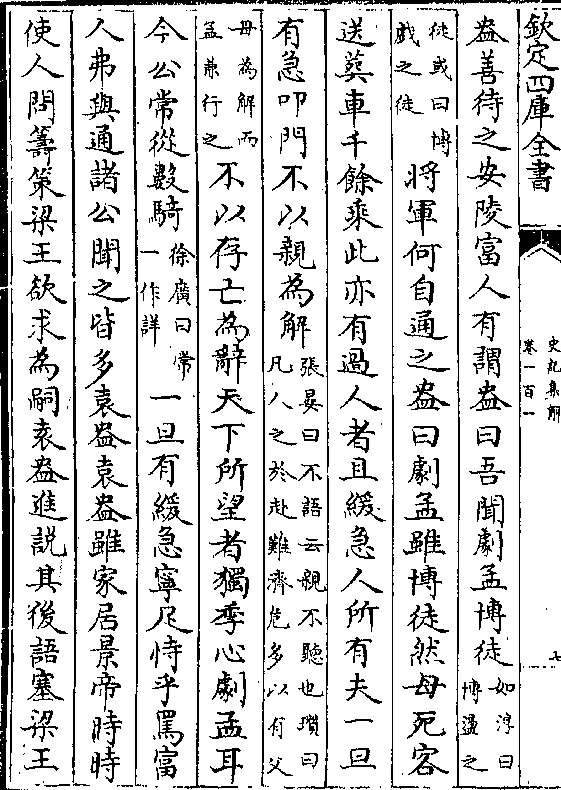 欽定四庫全書
史記集解
卷一百一
七
盎善待之安陵富人有謂盎曰吾聞劇孟博徒如淳曰博盪之
徒或曰博戲之徒將軍何自通之盎曰劇孟雖博徒然母死客
送葬車千餘乘此亦有過人者且緩急人所有夫一旦
有急叩門不以親為解張晏曰不語云親不聽也瓚曰凡人之於赴難濟危多以有父
母為解而孟兼行之不以存亡為辭天下所望者獨季心劇孟耳
今公常從數騎徐廣曰常一作詳一旦有緩急寧足恃乎罵富
人弗與通諸公聞之皆多袁盎袁盎雖家居景帝時時
使人問籌策梁王欲求為嗣袁盎進說其後語塞梁王